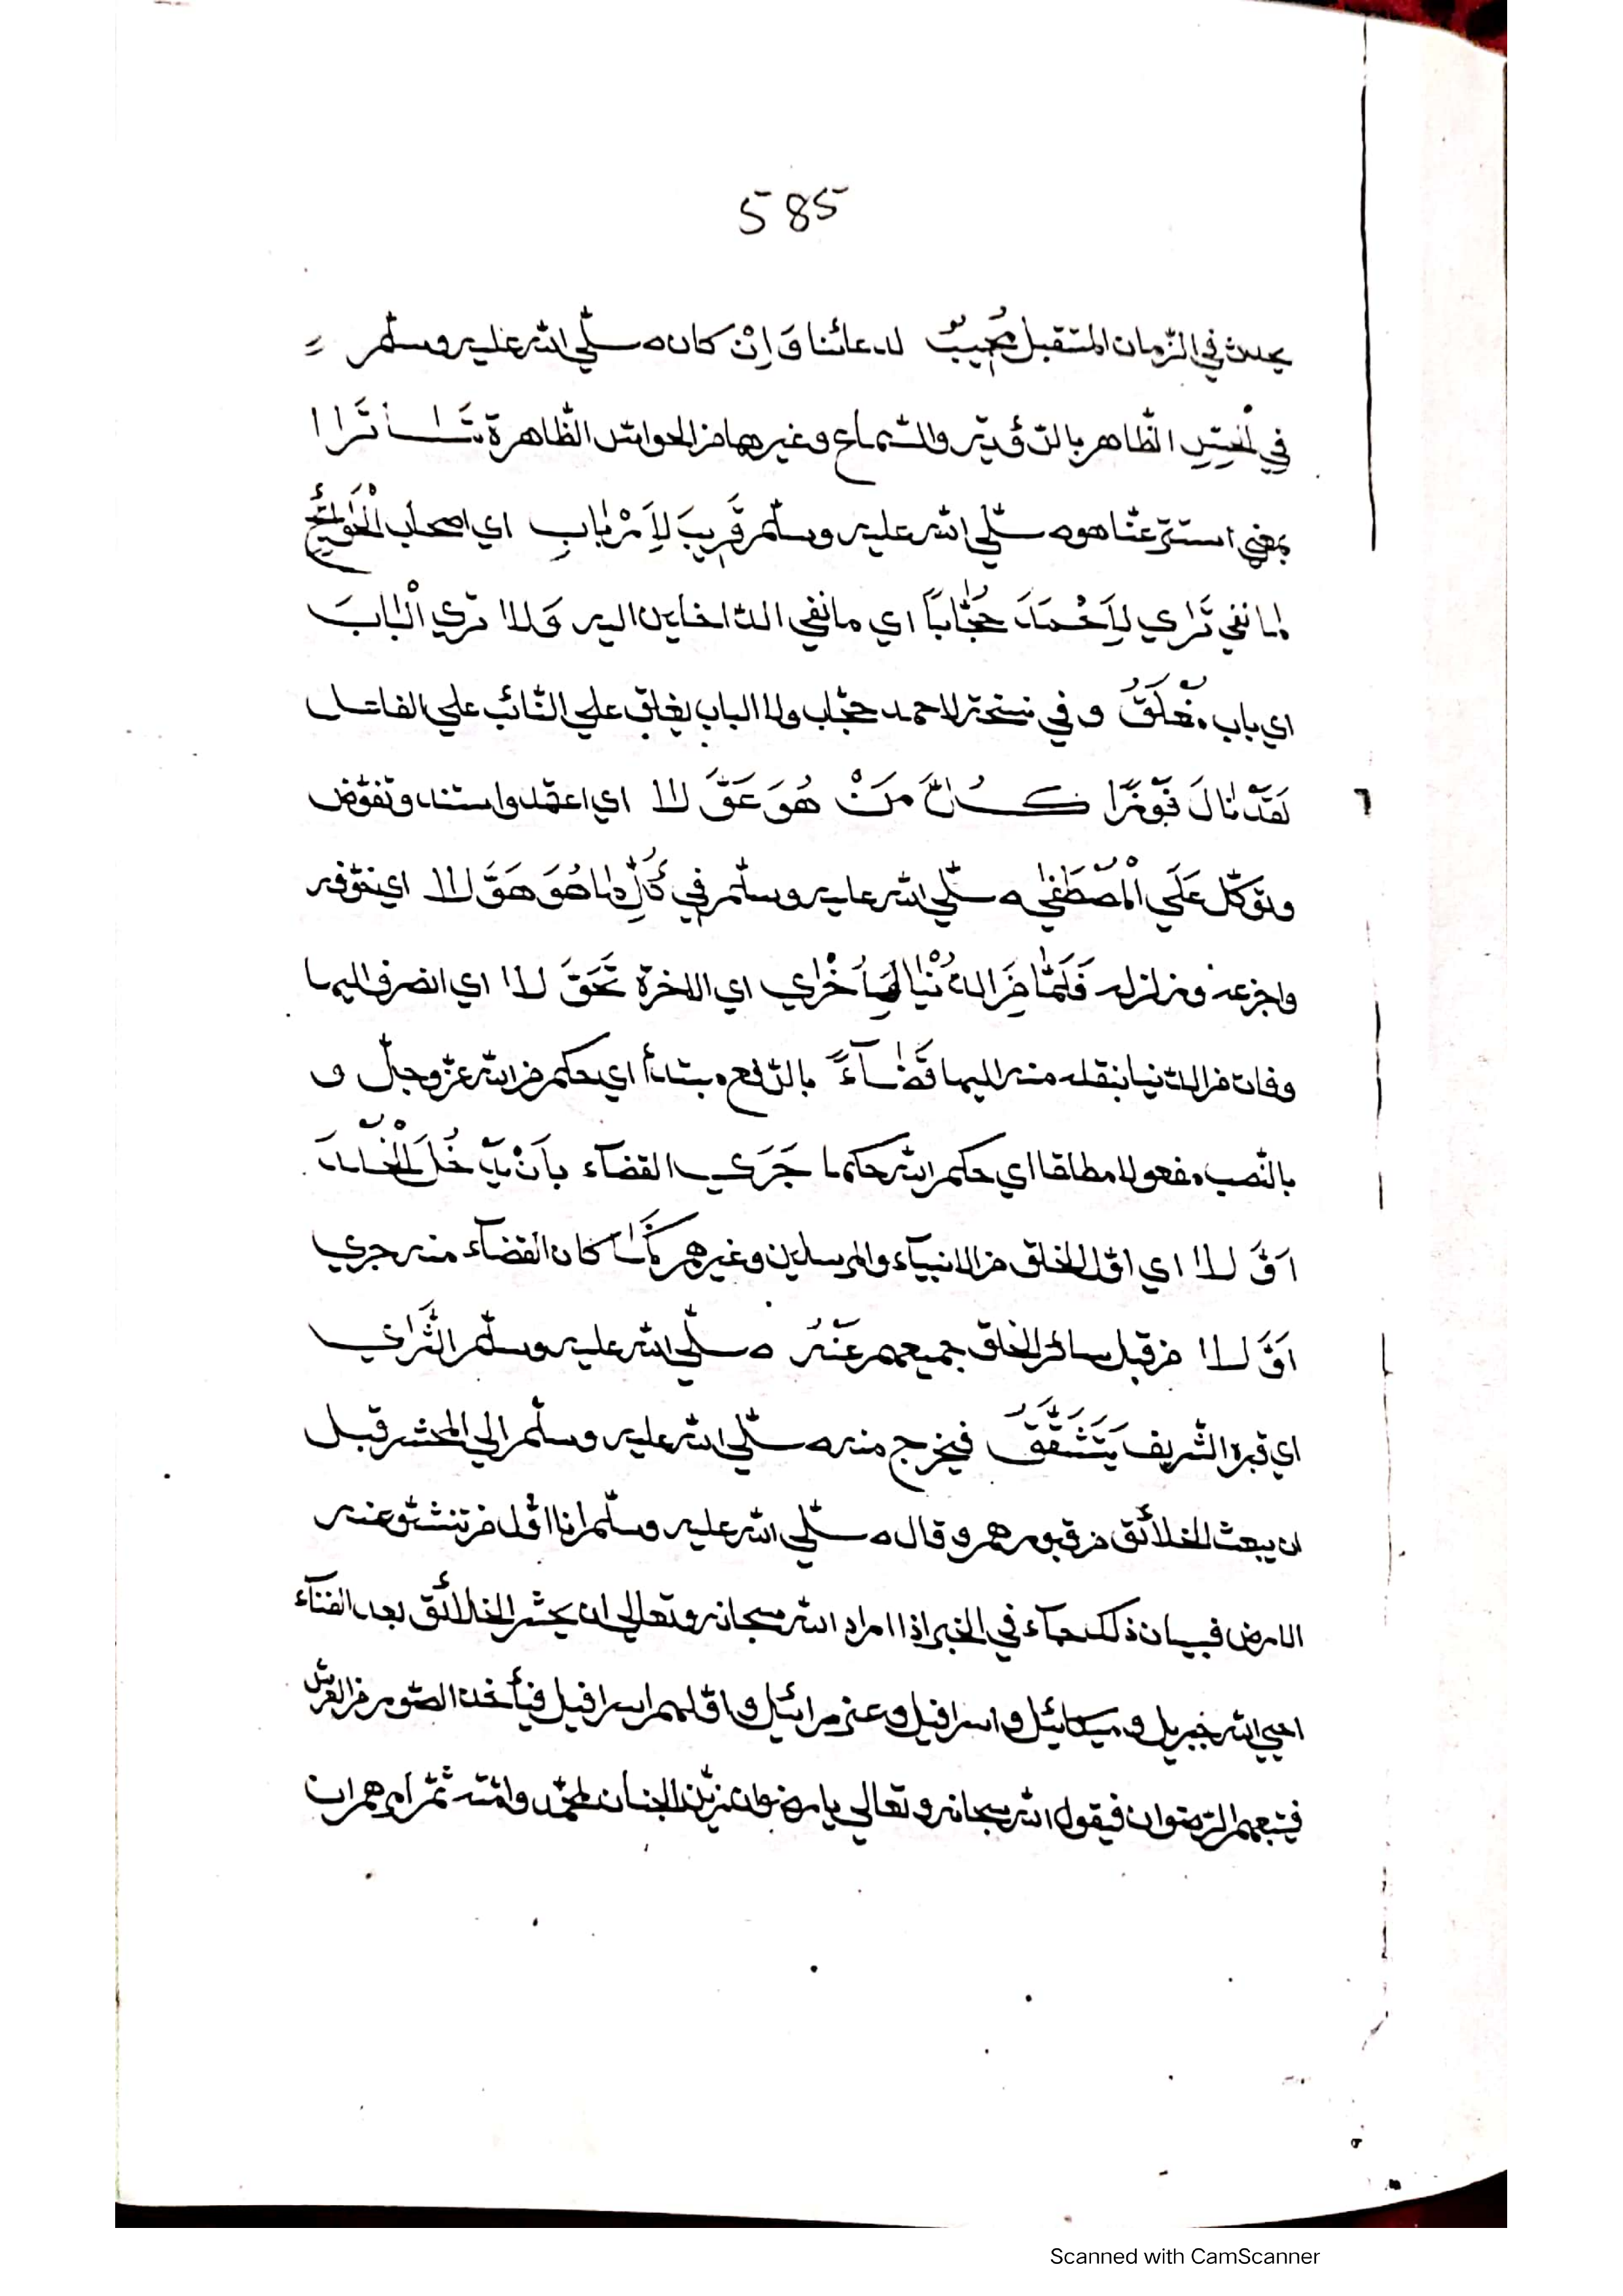 585
يحدث في الزّمان المستقبل مُجِيبٌ لدعائنا وَاِنْ كان صلّي الله عليه وسلّم
في الْحِسِّ الظّاهر بالرّؤية والسّماع وغيرهما من الحواسّ الظّاهرة تَسَاتَرَا
بمعني استترعنّا هو صلّي الله عليه وسلّم قَرِيبَ لِاَرْبَابِ اي اصحاب الْحَوَائِجِ
مانفي تَرَاي لِاَحْمَدَ حُجَّاباً اي مانفي الدّاخلين اليه وَلا تري الْبَابَ
اي باب مُغْلَقُ و في نسخة لاحمد حجّاب ولا الباب يغلق علي النّائب علي الفاعل
لَقَدْ نَالَ فَوْزًا كُلُّ مَنْ هُوَ عَوَّلا اي اعتمد واستند وتفوّض
وتوكّل عَلَي الْمُصْطَفٰي صلّي الله عليه وسلّم في كُلِّ مَا هُوَ هَوَّلا اي خوّفه
واجزعه وزلزله فَلَمَّا مِنَ الدُّنْيَا لِاُخْرَاي اي الاخرة تَحَوَّلا اي انصرف اليها
وفات من الدّنيا بنقله منه اليها قَضَآءٌ بالرّفع مبتدأ اي حكم من الله عزّوجلّ و
بالنّصب مفعولا مطلقا اي حكم الله حكما جَرَي القضآء بِاَنْ يَدْخُلَ الْخُلْدَ
اَوَّلا اي اوّل الخلق من الانبيآء والمرسلين وغيرهم كَمَا كان القضآء منه جري
اَوَّلا من قبل سائر الخلق جميعهم عَنْهُ صلّي الله عليه وسلّم الثَّرَاي
اي قبره الشّريف يَتَشَقَّقُ فيخرج منه صلّي الله عليه وسلّم الي المحشر قبل
ان يبعث الخلائق من قبورهم وقال صلّي الله عليه وسلّم انا اوّل من تنشقّ عنه
الارض فبيان ذلك جآء في الخبر اذا اراد الله سبحانه وتعالي ان يحشر الخلائق بعد الفنآء
احيي الله جبريل وميكائيل واسرافيل وعزرائيل واوّلهم اسرافيل فيأخذ الصّور من العرش
فيتبعهم الرّضوان فيقول الله سبحانه وتعالي يا رضوان زيّن الجنان لمحمّد وامّته ثمّ امرهم ان
Scanned with CamScanner